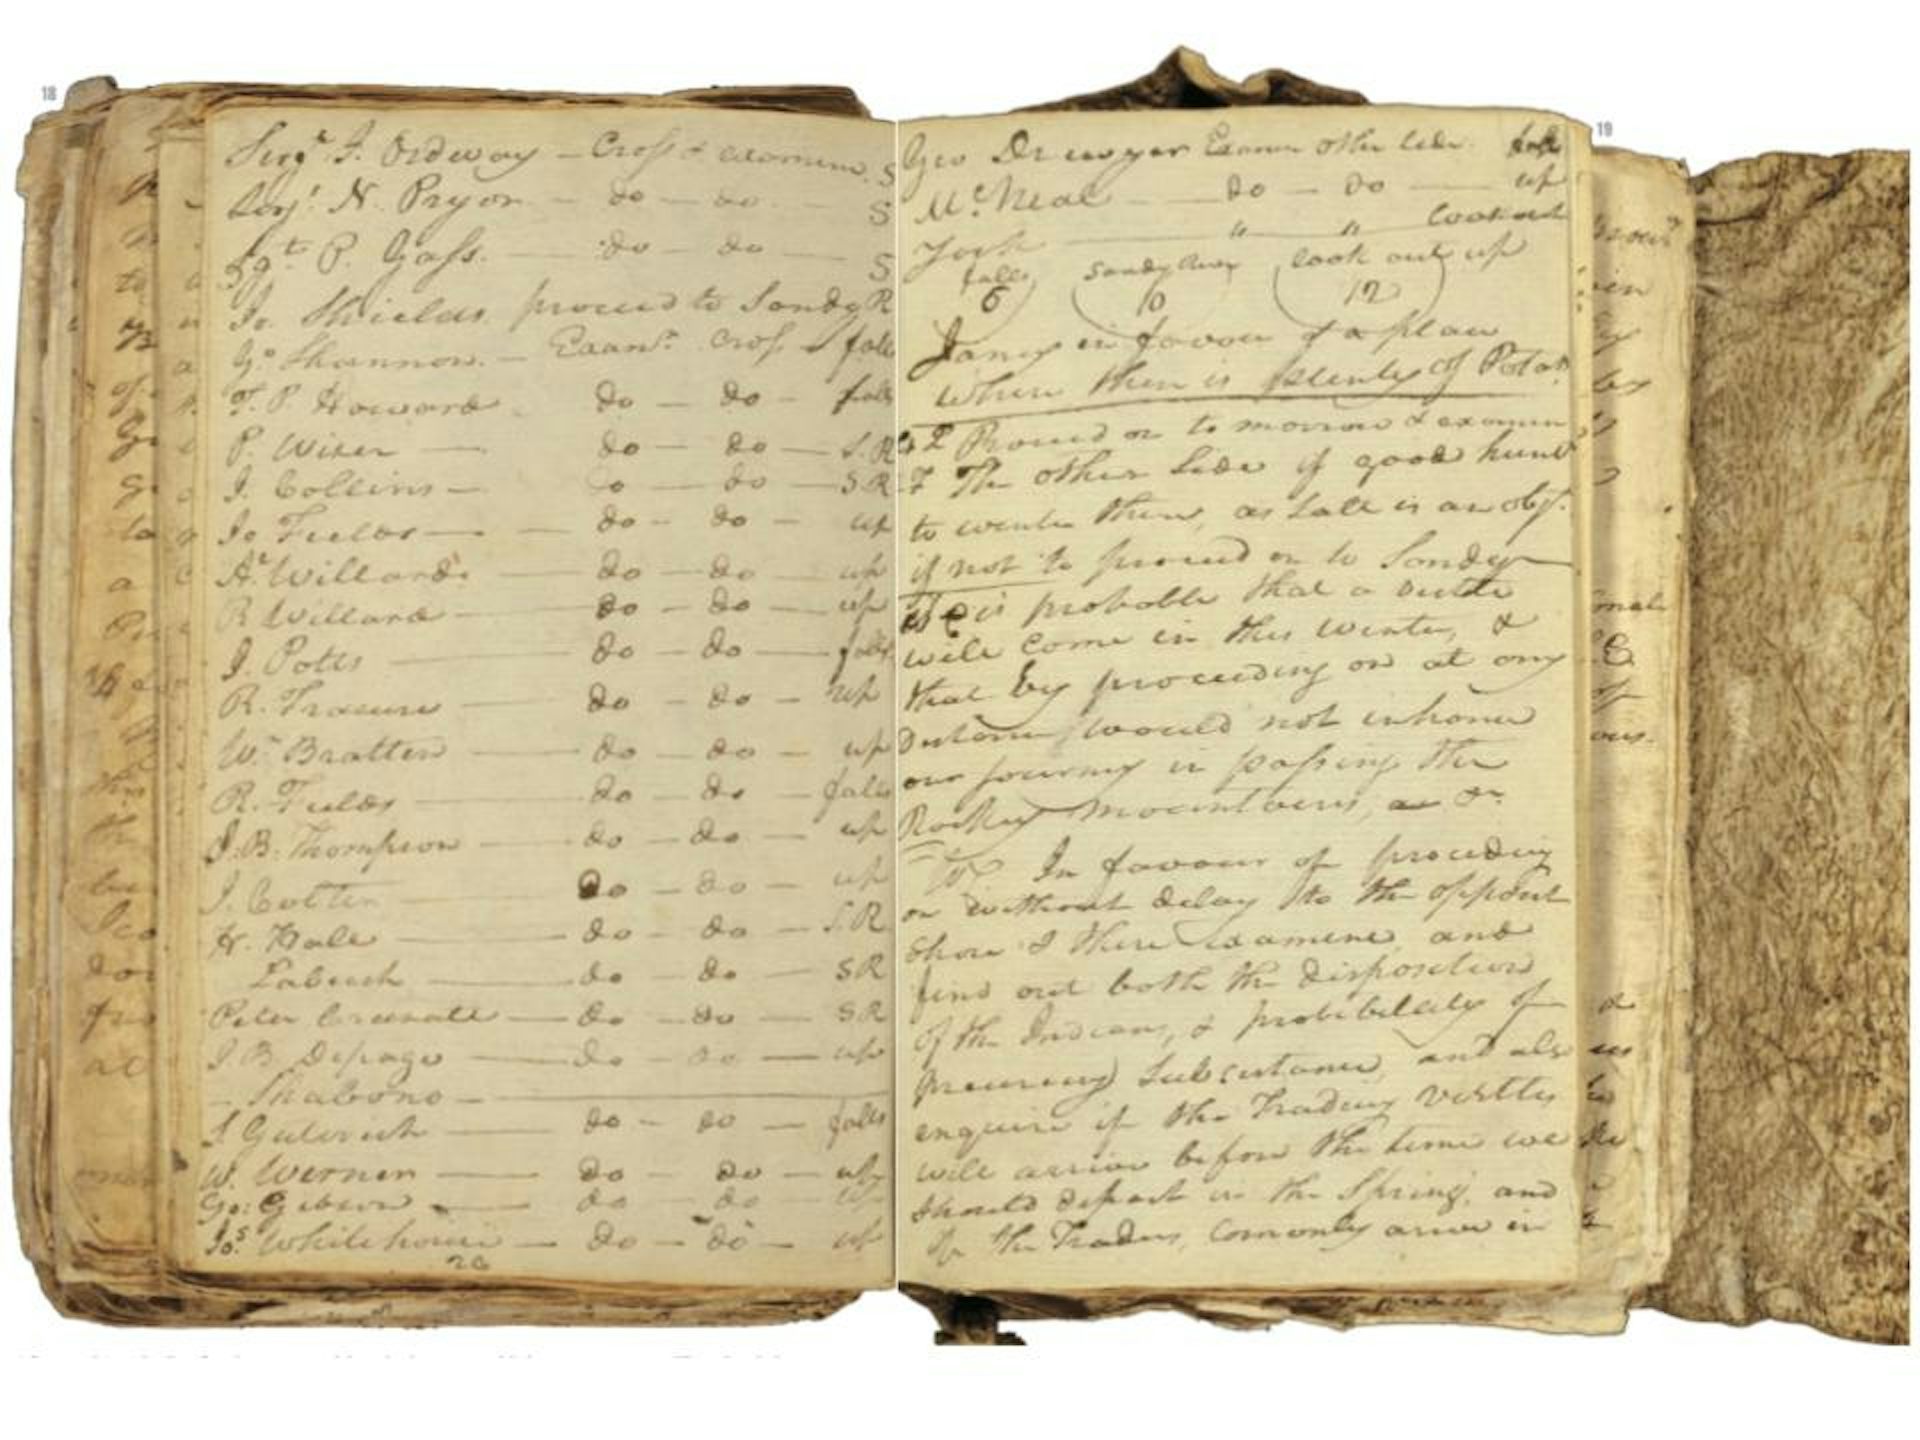 18
Serjt J. Ordway - Cross & examine S
Serjt N. Pryor - do - do - S
Sgt P. Gass. - do - do - S
Jo. Shields proceed to Sandy R
Go. Shannon. - Examn. Cross falls
T. P. Howard - do - do - falls
P. Wiser - do - do - S. R
J. Collins - do - do - S R
Jo Fields - do - do - up
Al. Willard - do - do - up
R Willard - do - do - up
J. Potts - do - do - falls
R. Frasure - do - do - up
Wm Bratten - do - do - up
R. Fields - do - do - falls
J. B. Thompson - do - do - up
J. Colter - do - do - up
H. Hall - do - do - S. R
Labeech - do - do - S R
Peter Crusatte - do - do - S R
J. B. Depage - do - do - up
Shabono -
S Guterich - do - do - falls
W. Werner - do - do - up
Go: Gibson - do - do - up
Jos. Whitehouse - do - do - up
26
19
Geo Drewyer Examn other side falls
McNeal - do - do - up
York " " lookout
falls Sandy River look out up
6 10 12
Janey in favour of a place
where there is plenty of Potas.
Proceed on to morrow & examine
The other side if good hunt
to winter there, as salt is an obj.
if not to proceed on to Sandy
it is probable that a
will come in this winter, &
that by proceeding on at any
distance would not inhance
our journey in passing the
Rockey mountains, &c
In favour of proceding
on without delay to the opposit
shore & there examine, and
find out both the disposition
of the Indians, & probibilaty of
precureing Subsistance, and also
enquire if the Tradeing vestles
will arrive before the time we
should depart in the Spring, and
if the Traders, comonly arive in